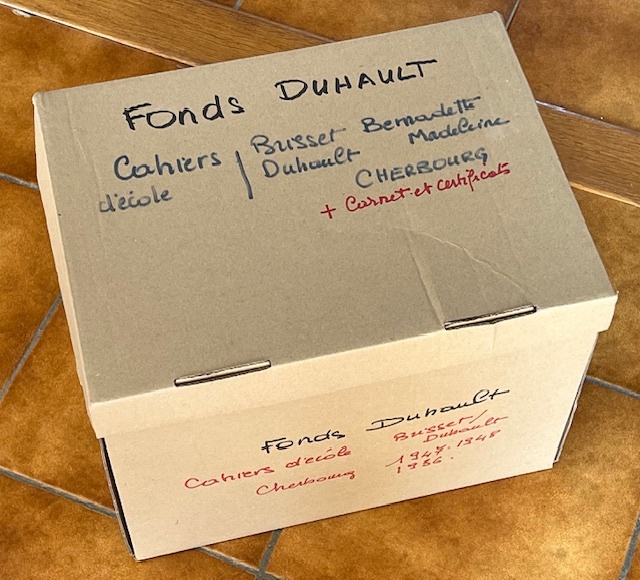 Fonds DUHAULT
Cahiers d'école
Busset Bernadette
Duhault Madeleine
CHERBOURG
+ Carnet et certificats
Fonds Duhault
Cahiers d'école Busset/
Duhault
Cherbourg 1947.1948
1936.